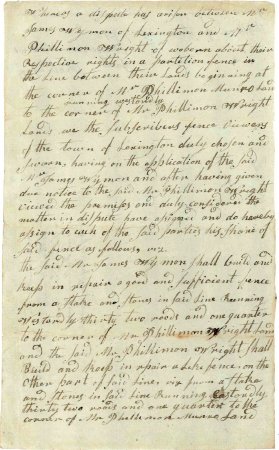 Whereas a dispute has arisen between Mr
James Wymon of Lexington and Mr
Phillimon Wright of woborn about their
Respective rights in a partition fence in
the Line between their Lands beginning at
the corner of Mr Phillimon Munro Land
running westardly
to the corner of Mr Phillimon Wright
Land we the Subscribers fence viewers
of the town of Lexington duly chosen and
sworn, having on the application of the said
Mr James Wymon and after having given
due notice to the said Mr Phillimon Wright
viewed the premises and duly considered the
matter in dispute have assigned and do hereby
assign to each of the said parties his share of
said fence as follows viz
the said Mr James Wymon shall build and
keep in repair a good and sufficient fence
from a stake and stones in said Line Running
westardly thirty two roods and one quarter
to the corner of Mr Phillimon Wright Land
and the said Mr Phillimon Wright shall
Build and Keep in repair a like fence on the
Other part of said Line viz from a stake
and stones in said Line Running Eastordly
thirty two roods and one quarter to the
corner of Mr Phillimon Munro Land